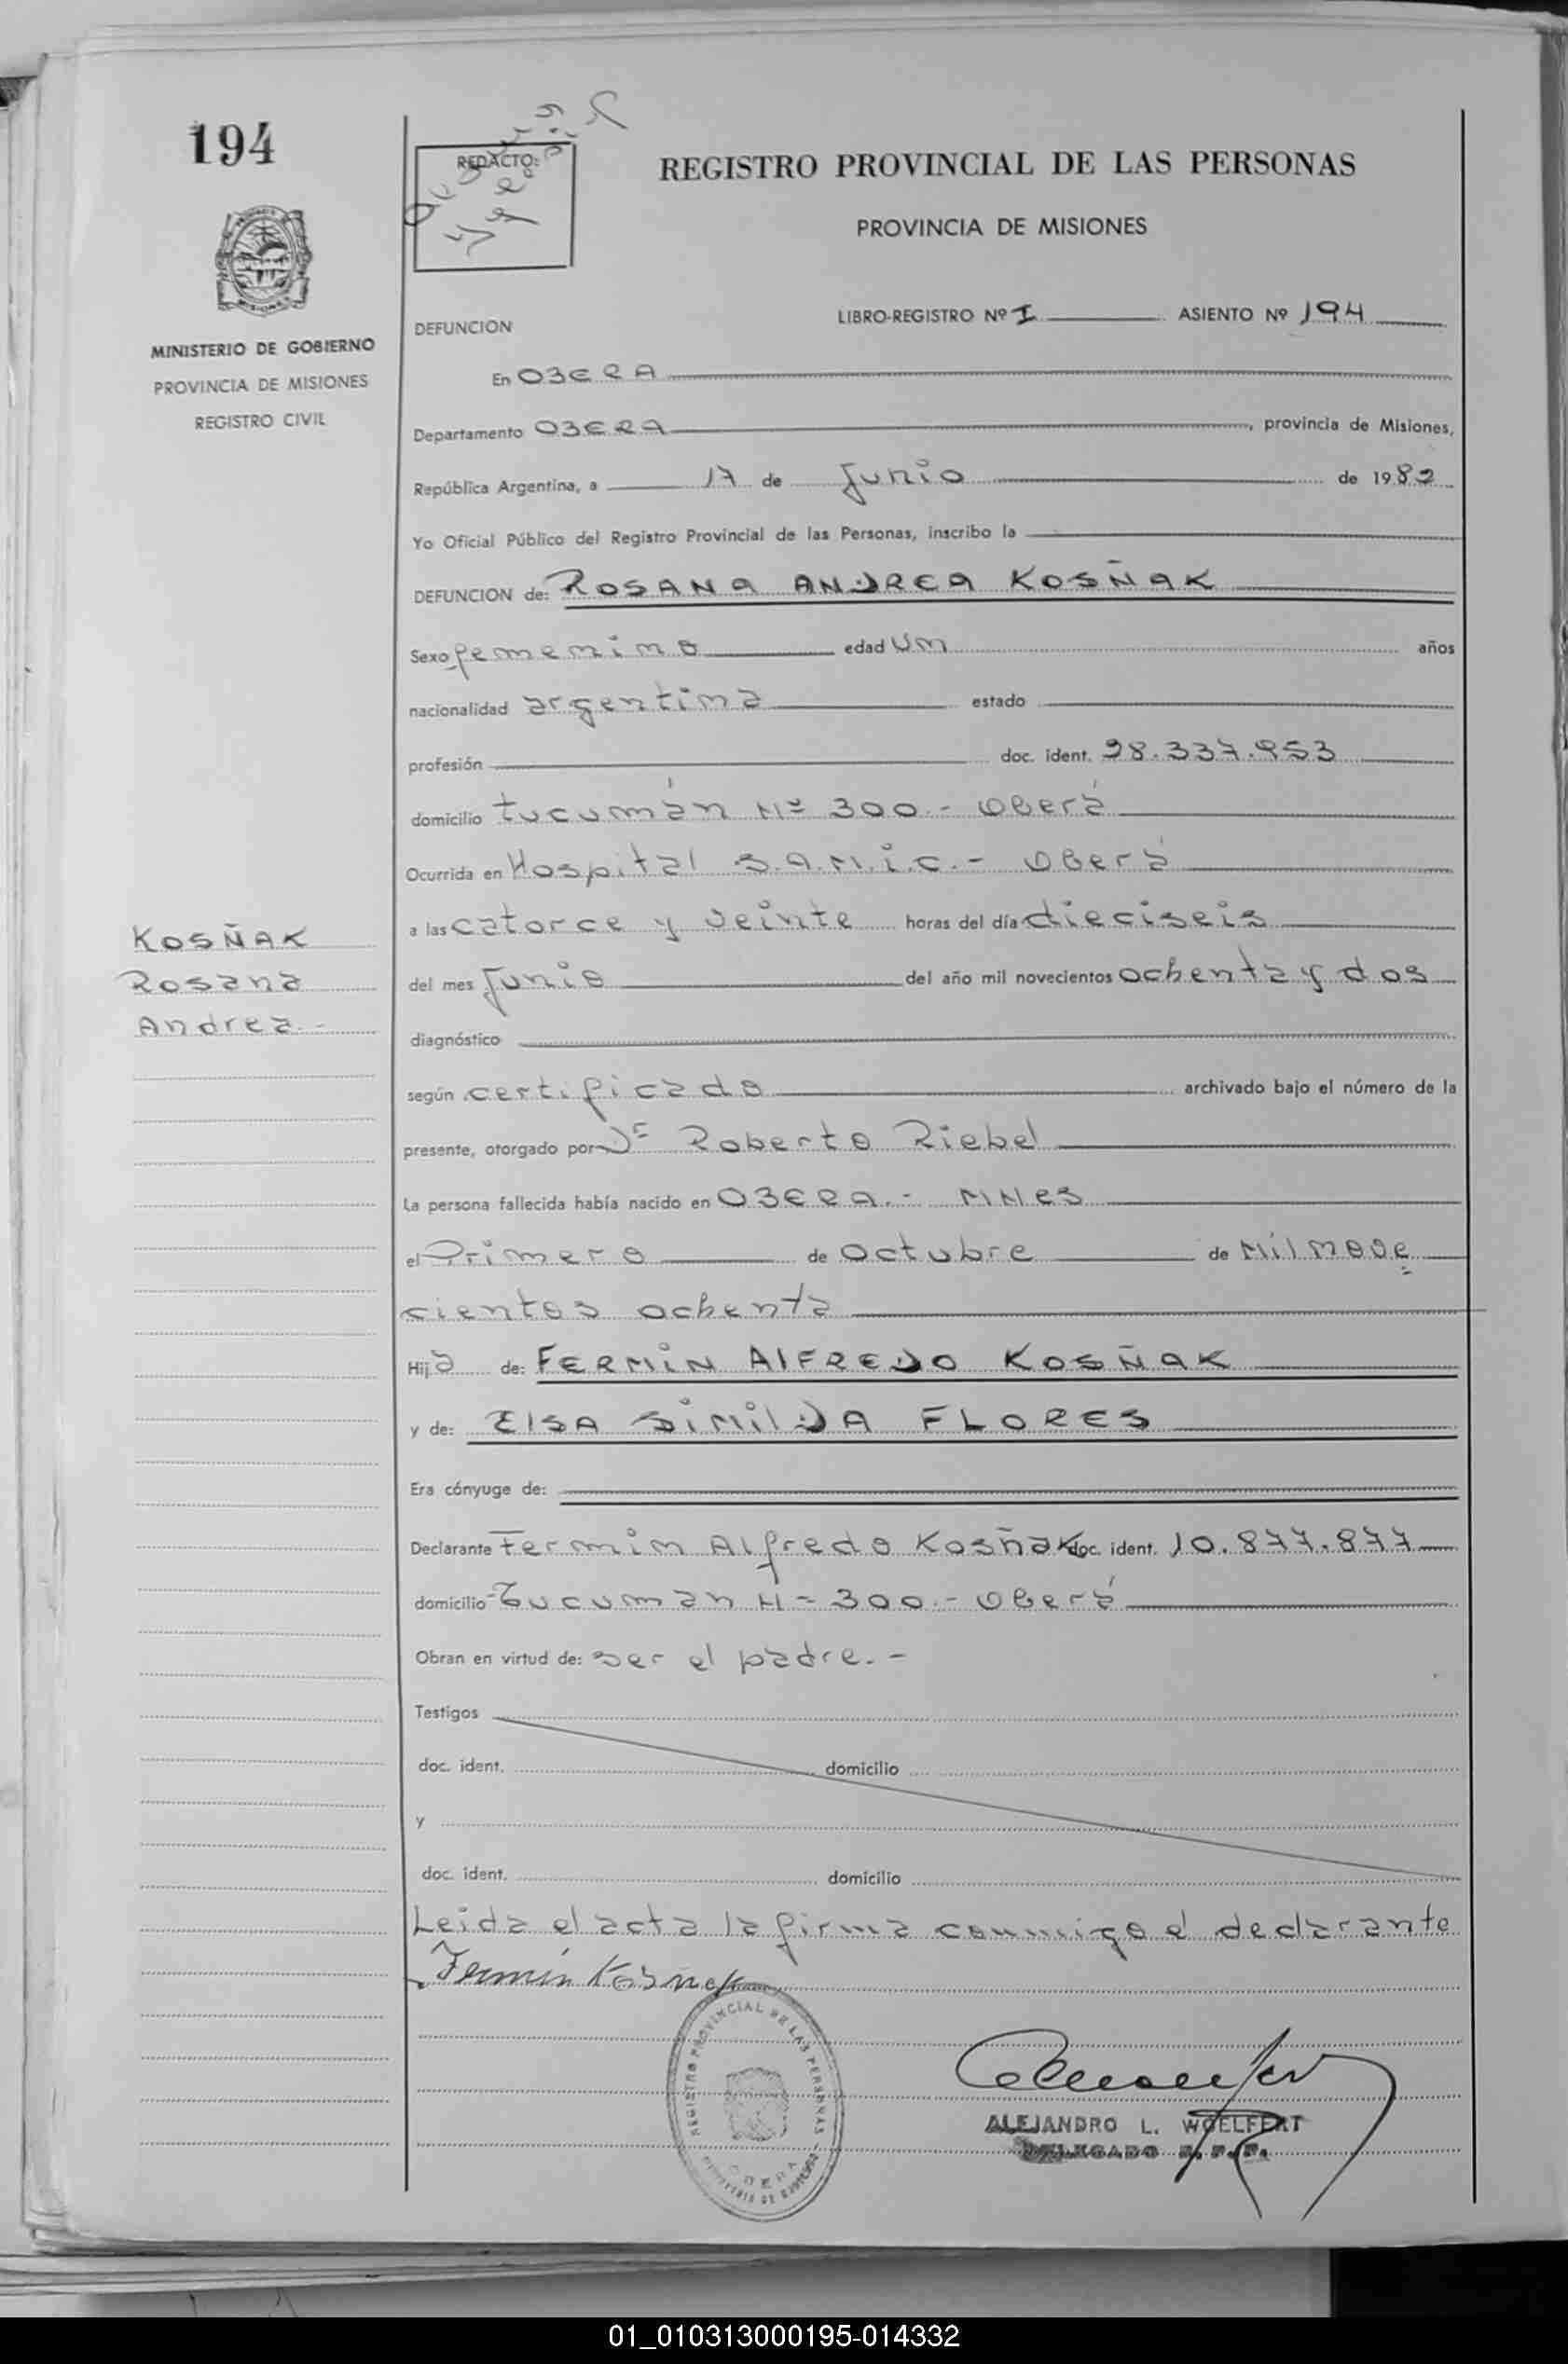 194
REDACTO:
REGISTRO PROVINCIAL DE LAS PERSONAS
PROVINCIA DE MISIONES
MINISTERIO DE GOBIERNO
PROVINCIA DE MISIONES
REGISTRO CIVIL
LIBRO-REGISTRO Nº I ASIENTO Nº 194
DEFUNCION
En OBERA
Departamento OBERA, provincia de Misiones,
República Argentina, a 17 de Junio de 1982
Yo Oficial Público del Registro Provincial de las Personas, inscribo la
DEFUNCION de: ROSANA ANDREA KOSÑAK
Sexo femenino edad un años
nacionalidad argentina estado
profesión doc. ident. 28.337.953
domicilio tucumán Nº 300.- Oberá
Ocurrida en Hospital S.A.M.i.c.- Oberá
a las catorce y veinte horas del día dieciseis
del mes Junio del año mil novecientos ochenta y dos
KOSÑAK
Rosana
Andrea.-
diagnóstico
según certificado archivado bajo el número de la
presente, otorgado por Dr Roberto Riebel
La persona fallecida había nacido en OBERA.- MNES
el Primero de Octubre de Mil nove
cientos ochenta
Hija de: FERMIN AlFREDO KOSÑAK
y de: ElSA SIMILDA FLORES
Era cónyuge de:
Declarante Fermin Alfredo Kosñak doc. ident. 10.877.877
domicilio Tucuman Nº 300.- Oberá
Obran en virtud de: ser el padre.-
Testigos
doc. ident. domicilio
y
doc. ident. domicilio
Leida el acta la firma conmigo el declarante
Fermín Kosnak
REGISTRO PROVINCIAL DE LAS PERSONAS
OBERA
ALEJANDRO L. WOELFERT
DELEGADO R.P.P.
01_010313000195-014332